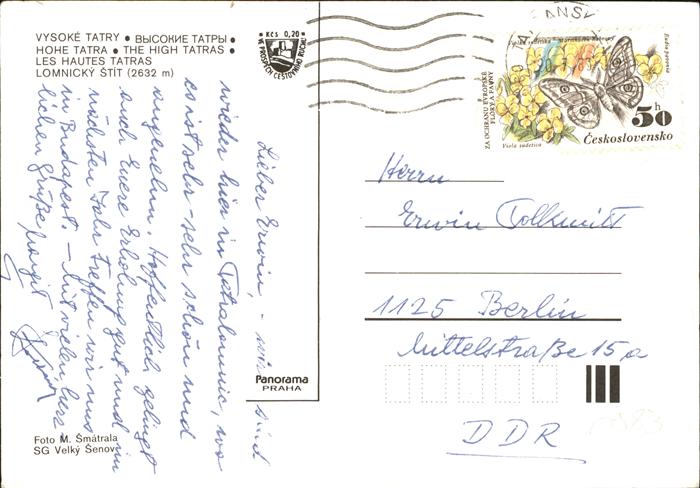 VYSOKÉ TATRY • ВЫСОКИЕ ТАТРЫ •
HOHE TATRA • THE HIGH TATRAS •
LES HAUTES TATRAS
LOMNICKÝ ŠTÍT (2632 m)
Kčs 0,20
VE PROSPĚCH CESTOVNÍHO RUCHU
Lieber Erwin, - wir sind
wieder hier in Tatralomnic, wo
es ist sehr - sehr schön und
angenehm. Hoffentlich gelingt
auch Euere Erholung gut und im
nächsten Jahr treffen wir uns
in Budapest. - Mit vielen herz-
lichen Grüße Margit
Panorama
PRAHA
Foto M. Šmátrala
SG Velký Šenov
ZA OCHRANU EVROPSKÉ
FLÓRY A FAUNY
Viola sudetica
50 h
Československo
Herrn
Erwin Tollkmitt
1125 Berlin
Mittelstraße 15a
DDR